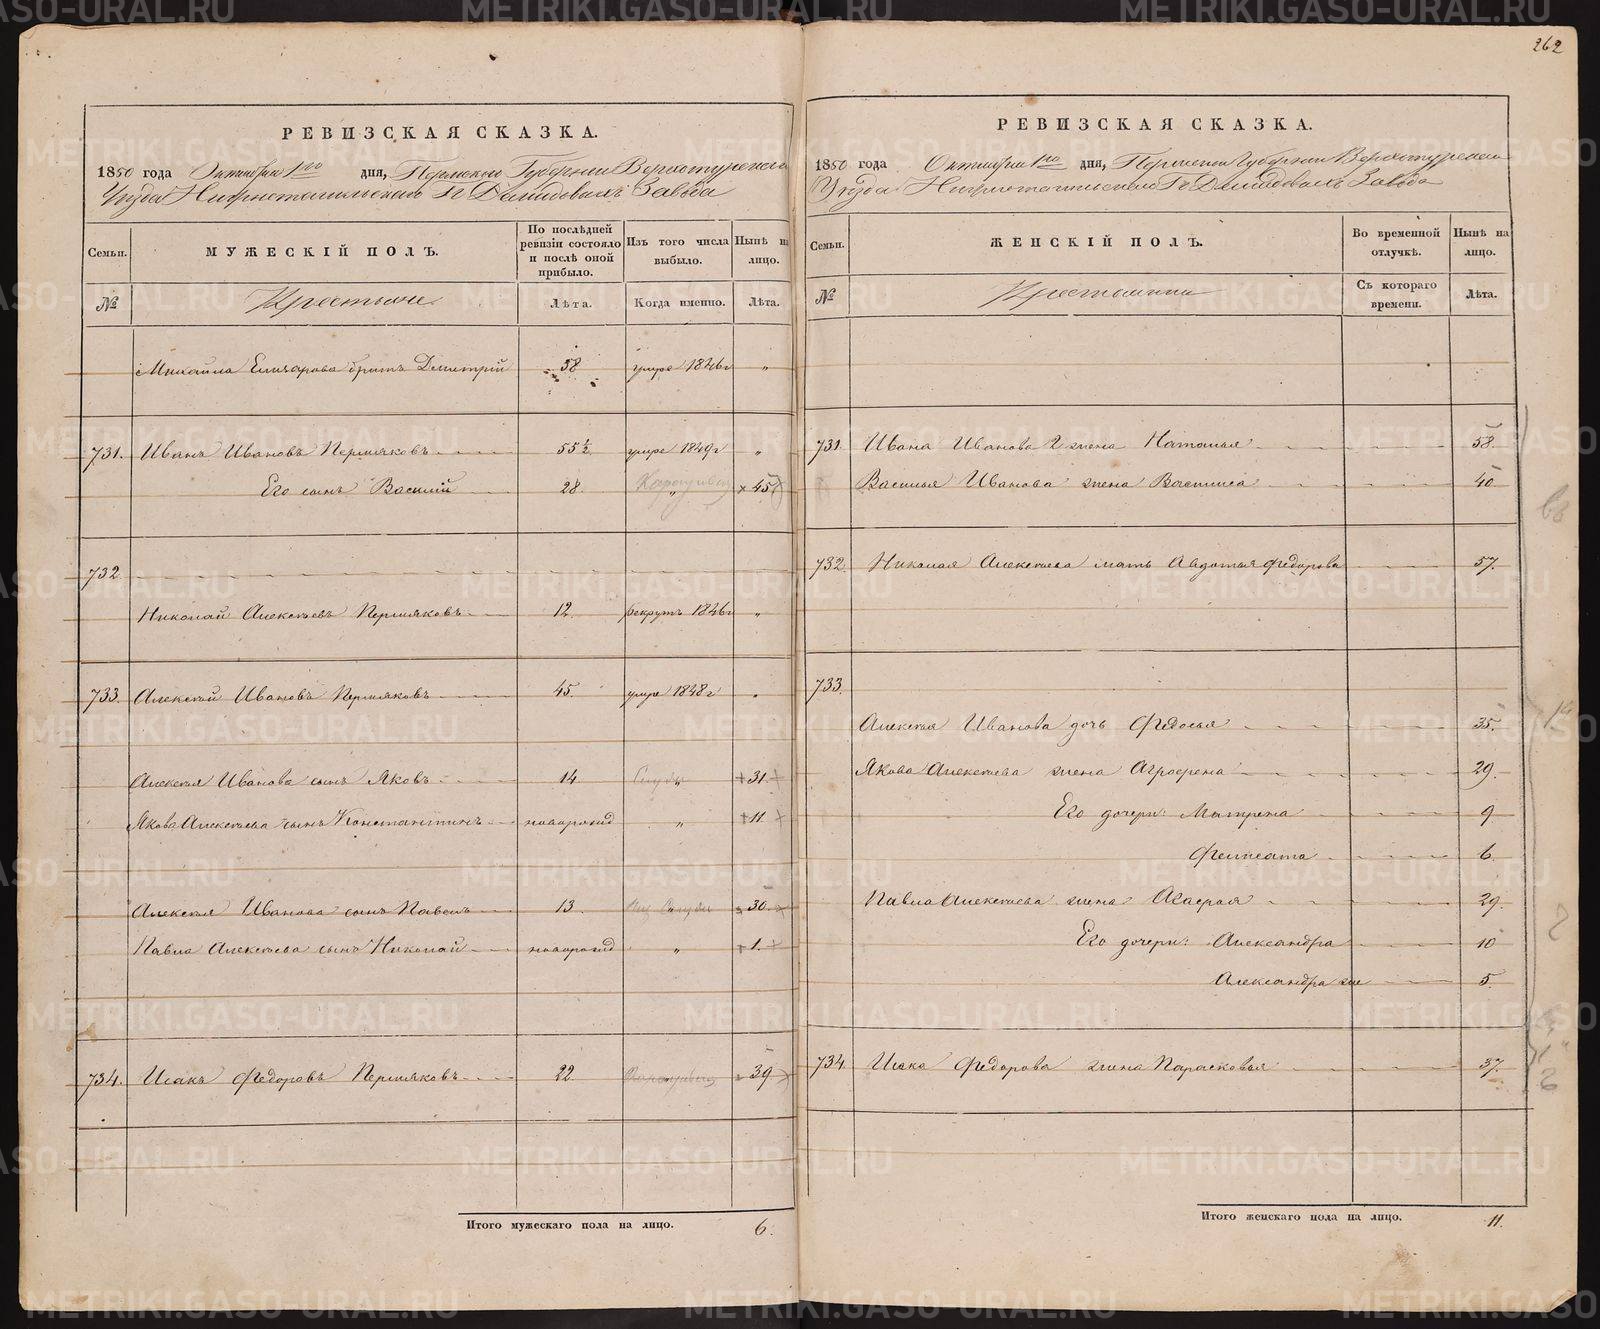 262
РЕВИЗСКАЯ СКАЗКА.
1850 года Октября 1го дня, Пермской Губернии Верхотурскаго
Уезда Нижнетагильскаго Гг Демидовыхъ Завода
Семьи.
МУЖЕСКІЙ ПОЛЪ.
По послѣдней ревизіи состояло и послѣ оной прибыло.
Изъ того числа выбыло.
Нынѣ на лицо.
№
Крестьяне
Лѣта.
Когда именно.
Лѣта.
Михайла Елизарова братъ Дементрій 58 умре 1846г "
731. Иванъ Ивановъ Пермяковъ 55½ умре 1849г "
Его сынъ Василій 28. " 45
732.
Николай Алексѣевъ Пермяковъ 12. рекрутъ 1846г "
733. Алексѣй Ивановъ Пермяковъ 45 умре 1848г "
Алексѣя Иванова сынъ Яковъ 14 " 31.
Якова Алексѣева сынъ Константинъ новорожд " 11.
Алексѣя Иванова сынъ Павелъ 13. " 30.
Павла Алексѣева сынъ Николай новорожд " 1.
734. Исакъ Федоровъ Пермяковъ 22. 39
Итого мужескаго пола на лицо. 6.
РЕВИЗСКАЯ СКАЗКА.
1850 года Октября 1го дня, Пермской Губернии Верхотурскаго
Уезда Нижнетагильскаго Гг Демидовыхъ Завода
Семьи.
ЖЕНСКІЙ ПОЛЪ.
Во временной отлучкѣ.
Нынѣ на лицо.
№
Крестьянки
Съ котораго времени.
Лѣта.
731. Ивана Иванова 2 жена Наталья 58.
Василья Иванова жена Василиса 40
732. Николая Алексѣева мать Авдотья Федорова 57.
733.
Алексѣя Иванова дочь Федосья 35.
Якова Алексѣева жена Агрофена 29.
Его дочери: Матрена 9
6.
Павла Алексѣева жена Агафья 29.
Его дочери: Александра 10
Александра же 5.
734. Исака Федорова жена Парасковья 37.
Итого женскаго пола на лицо. 11.
METRIKI.GASO-URAL.RU